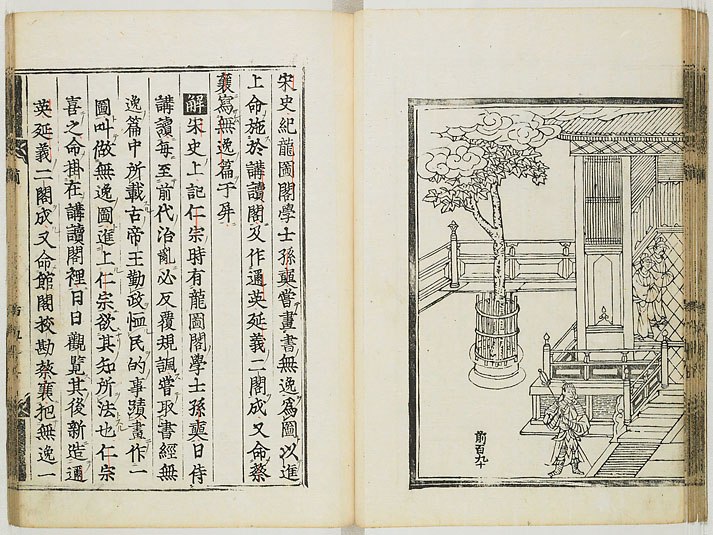 前百九十
宋史紀龍圖閣學士孫奭嘗畫書無逸爲圖以進
上命施於講讀閣及作邇英延義二閣成又命蔡
襄寫無逸篇于屏
解宋史上記仁宗時有龍圖閣學士孫奭日侍
講讀每至前代治亂必反覆規諷嘗取書經無
逸篇中所載古帝王勤政恤民的事蹟畫作一
圖叫做無逸圖進上仁宗欲其知所法也仁宗
喜之命掛在講讀閣裡日日觀覽其後新造邇
英延義二閣成又命館閣校勘蔡襄把無逸一